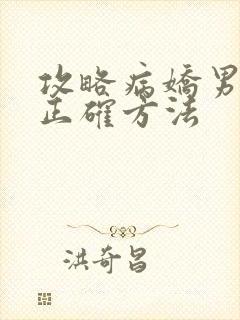 攻略病嬌男
正確方法
洪奇昌